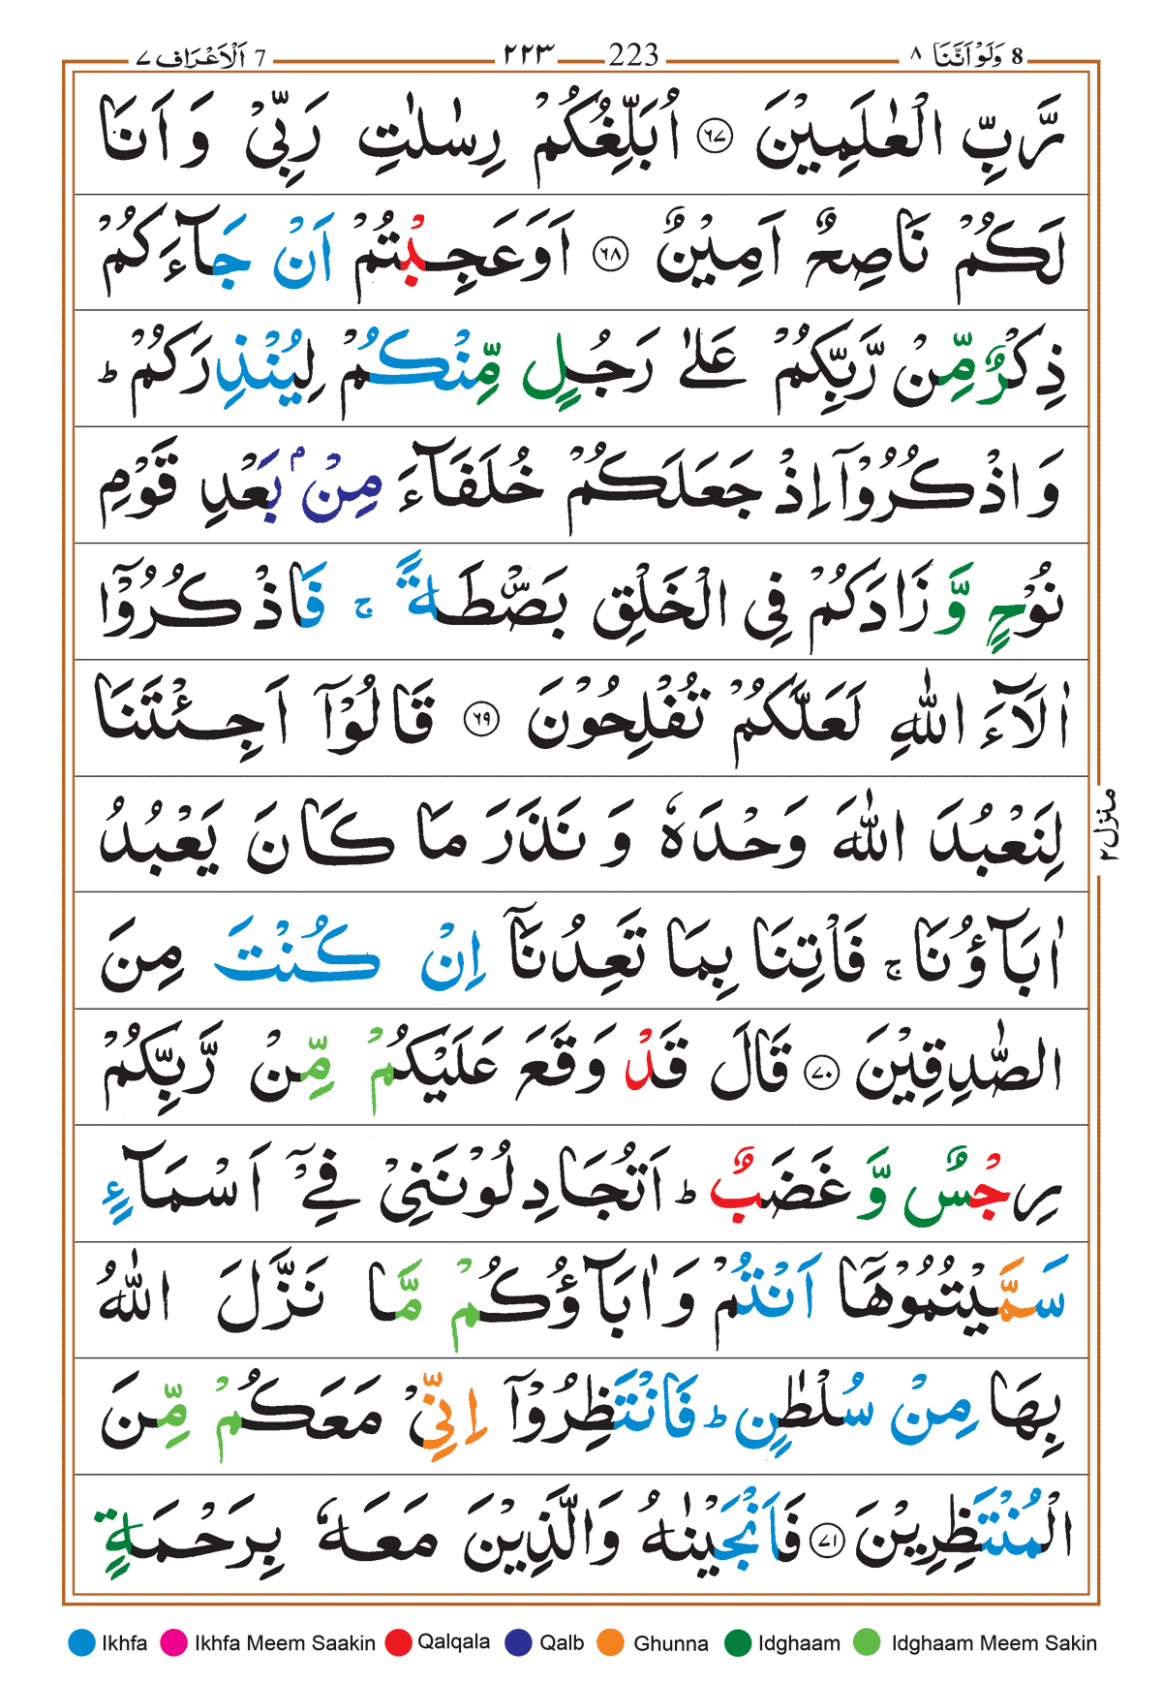 7 اَلْاَعْرَاف ٧ ٢٢٣ 223 8 وَلَوْ اَنَّنَا ٨
رَّبِّ الْعٰلَمِيْنَ ٦٧ اُبَلِّغُكُمْ رِسٰلٰتِ رَبِّىْ وَ اَنَا
لَكُمْ نَاصِحٌ اَمِيْنٌ ٦٨ اَوَعَجِبْتُمْ اَنْ جَآءَكُمْ
ذِكْرٌ مِّنْ رَّبِّكُمْ عَلٰى رَجُلٍ مِّنْكُمْ لِيُنْذِرَكُمْ ؕ
وَ اذْكُرُوْۤا اِذْ جَعَلَكُمْ خُلَفَآءَ مِنْۢ بَعْدِ قَوْمِ
نُوْحٍ وَّ زَادَكُمْ فِى الْخَلْقِ بَصْۜطَةً ۚ فَاذْكُرُوْۤا
اٰلَآءَ اللّٰهِ لَعَلَّكُمْ تُفْلِحُوْنَ ٦٩ قَالُوْۤا اَجِئْتَنَا
لِنَعْبُدَ اللّٰهَ وَحْدَهٗ وَ نَذَرَ مَا كَانَ يَعْبُدُ
اٰبَآؤُنَا ۚ فَاْتِنَا بِمَا تَعِدُنَاۤ اِنْ كُنْتَ مِنَ
الصّٰدِقِيْنَ ٧٠ قَالَ قَدْ وَقَعَ عَلَيْكُمْ مِّنْ رَّبِّكُمْ
رِجْسٌ وَّ غَضَبٌ ؕ اَتُجَادِلُوْنَنِىْ فِىْۤ اَسْمَآءٍ
سَمَّيْتُمُوْهَاۤ اَنْتُمْ وَ اٰبَآؤُكُمْ مَّا نَزَّلَ اللّٰهُ
بِهَا مِنْ سُلْطٰنٍ ؕ فَانْتَظِرُوْۤا اِنِّىْ مَعَكُمْ مِّنَ
الْمُنْتَظِرِيْنَ ٧١ فَاَنْجَيْنٰهُ وَالَّذِيْنَ مَعَهٗ بِرَحْمَةٍ
منزل ٢
Ikhfa Ikhfa Meem Saakin Qalqala Qalb Ghunna Idghaam Idghaam Meem Sakin